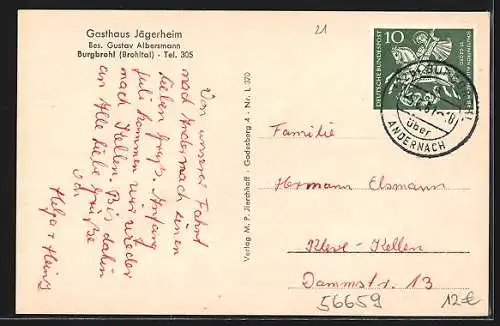 Gasthaus Jägerheim
Bes. Gustav Albersmann
Burgbrohl (Brohltal) - Tel. 305
21
Von unserer Fahrt
nach Andernach einen
lieben Gruß. Anfang
Juli kommen wir wieder
nach Kellen. Bis dahin
an Alle liebe Grüße
Helga + Heinz
Verlag M. P. Jierchhoff - Godesberg 4 - Nr. L 370
10
DEUTSCHE BUNDESPOST
über
ANDERNACH
Familie
Hermann Elsmann
Kleve-Kellen
Dammstr. 13
56659
12€